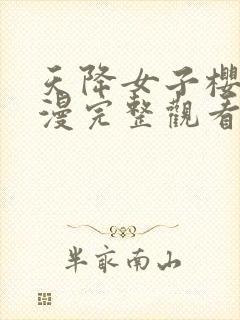 天降女子櫻
漫完整觀看
半畝南山